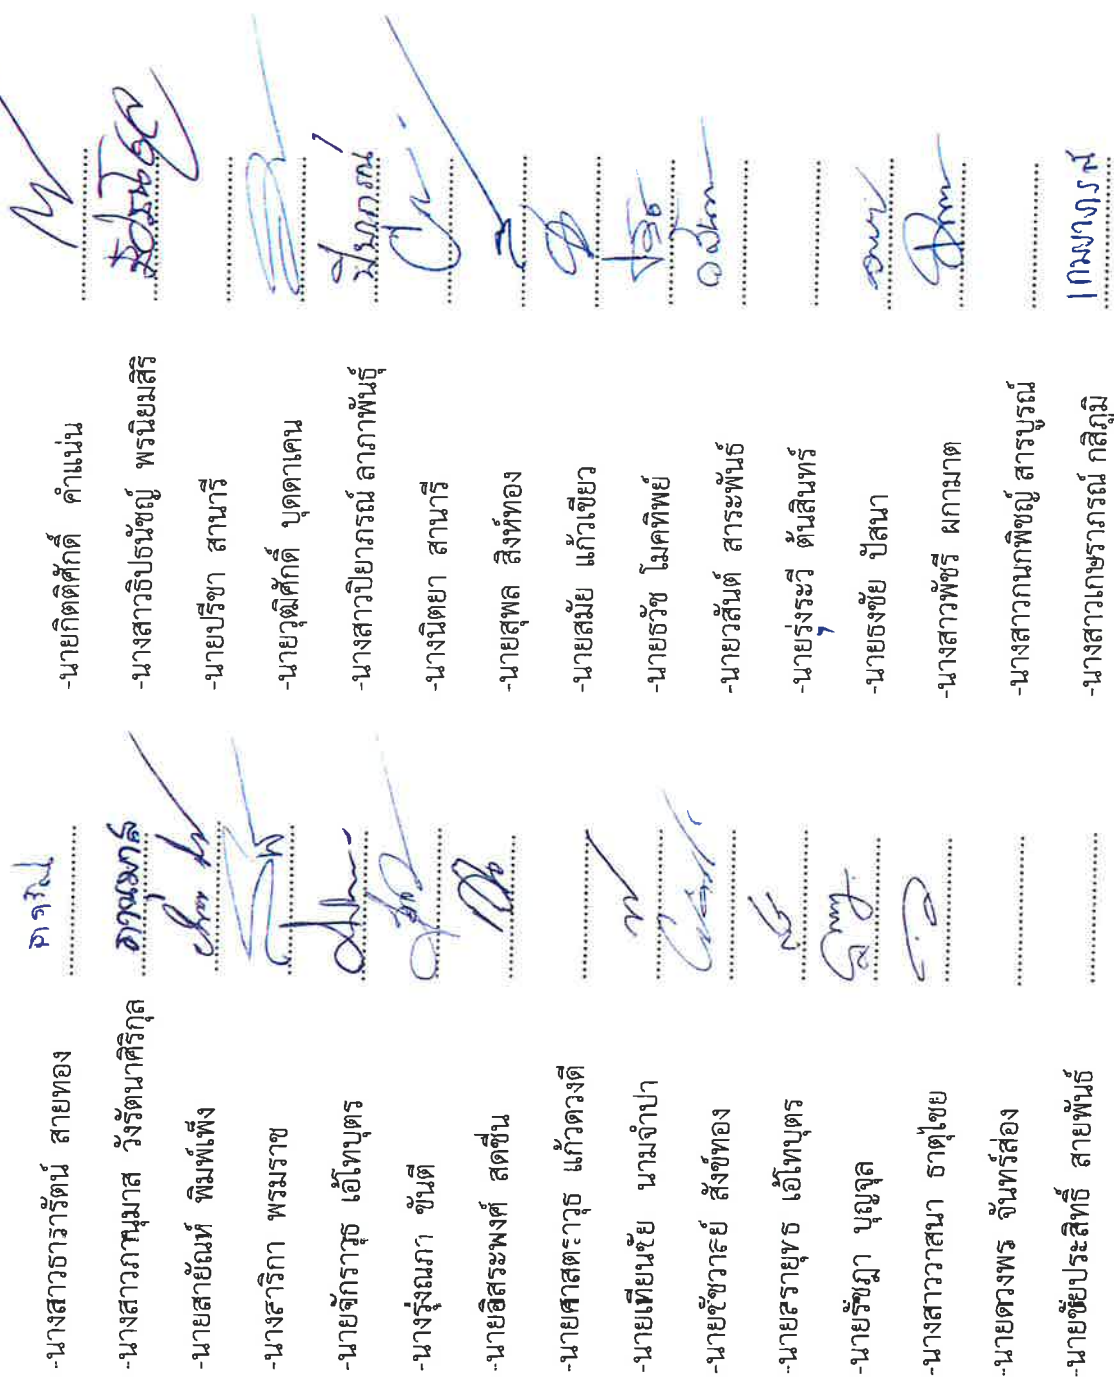 -นางสาวธารารัตน์ สายทอง
-นางสาวภาณุมาส วังรัตนาศิริกุล
-นายสายัณห์ พิมพ์เพ็ง
-นางสาริกา พรมราช
-นายจักราวุธ เอ้โทบุตร
-นางรุ่งณภา ขันตี
-นายอิสระพงศ์ สดชื่น
-นายศาสตราวุธ แก้วดวงดี
-นายเทียนชัย นามจำปา
-นายชัชวาลย์ สังข์ทอง
-นายสรายุทธ เอ้โทบุตร
-นายรัชฎา บุญจูล
-นางสาววาสนา ธาตุไชย
-นายดวงพร จันทร์ส่อง
-นายชัยประสิทธิ์ สายพันธ์
-นายกิตติศักดิ์ คำแน่น
-นางสาวธิปธนัชญ์ พรนิยมสิริ
-นายปรีชา สานารี
-นายวุฒิศักดิ์ บุดดาเคน
-นางสาวปิยาภรณ์ ลาภาพันธุ์
-นางนิตยา สานารี
-นายสุพล สิงห์ทอง
-นายสมัย แก้วเขียว
-นายธวัช โมคทิพย์
-นายวสันต์ สาระพันธ์
-นายรุ่งระวี ต้นสินทร์
-นายธงชัย ปัสนา
-นางสาวพัชรี ผกามาต
-นางสาวกนกพิชญ์ สารบูรณ์
-นางสาวเกษราภรณ์ กสิภูมิ